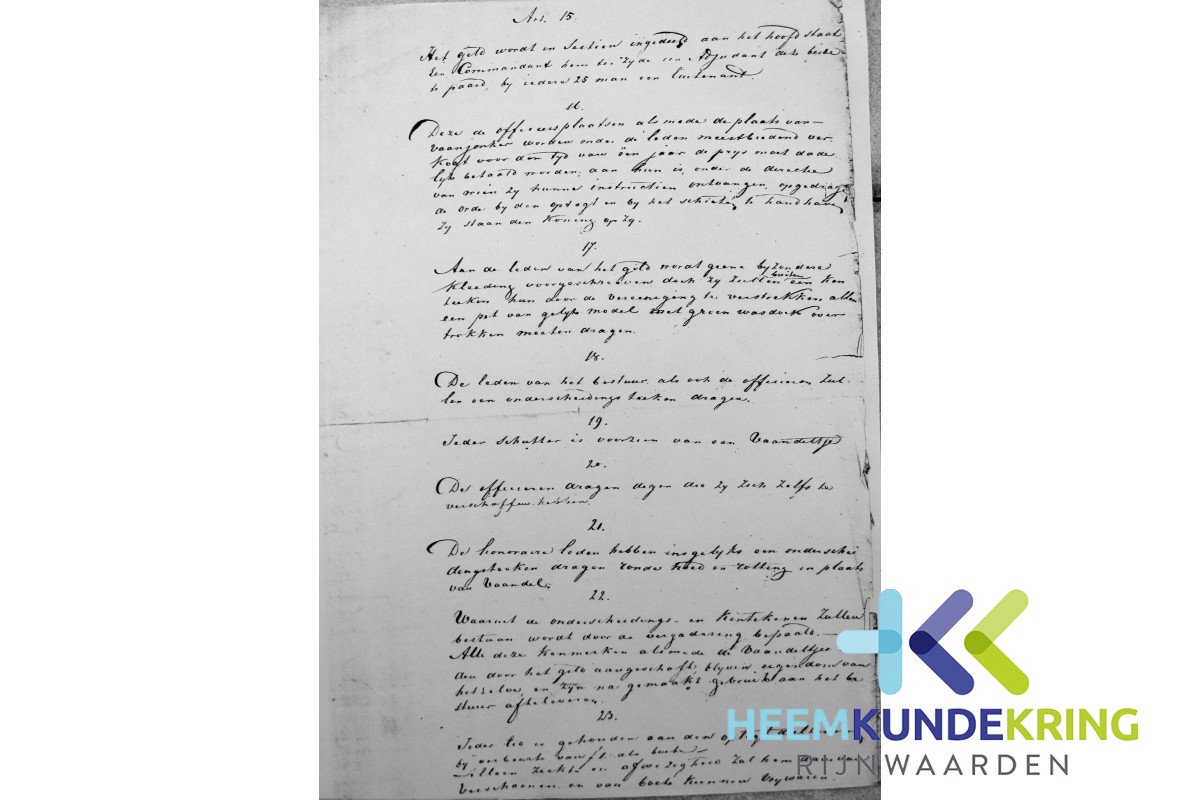 Art. 15.
Het gild wordt in Sectien ingedeeld aan het hoofd staat
Een Commandant hem ter zyde een Adjudant deze beide
te paard, by iedere 25 man een luitenant.
16.
Deze de officiersplaatsen alsmede de plaats van
vaanjonker worden onder de leden meestbiedend ver
kogt voor den tyd van één jaar de prys moet dade
lyk betaald worden; aan hun is, onder de directie
van wien zy hunne instructien ontvangen, opgedragen
de orde by den optogt en by het schieten te handhaven
zy staan den Koning op zy.
17.
Aan de leden van het gild wordt geene byzondere
kleeding voorgeschreven doch zy zullen buiten een ken
teeken hun door de vereeniging te verstrekken allen
een pet van gelyk model met groen wasdoek over
trokken moeten dragen.
18.
De leden van het bestuur als ook de officieren zul-
len een onderscheidings teeken dragen.
19.
Ieder Schutter is voorzien van een Vaandeltje
20.
De officieren dragen degen die zy zich zelfs te
verschaffen hebben.
21.
De honoraire leden hebben insgelyks een onderschei
dingsteeken dragen ronde hoed en rotting in plaats
van Vaandel.
22.
Waaruit de onderscheidings- en Kentekenen zullen
bestaan wordt door de vergadering bepaald.
Alle deze Kenmerken alsmede de Vaandeltjes
den door het gild aangeschaft, blyven eigendom van
hetzelve, en zyn na gemaakt gebruik aan het be
stuur afteleveren.
23.
Ieder lid is gehouden aan den optogt
by verbeurte van als boete
Alleen ziekte en afwezigheid zal hem daarvan
verschoonen en van boete kunnen vrywaren.
HEEMKUNDEKRING
RIJNWAARDEN